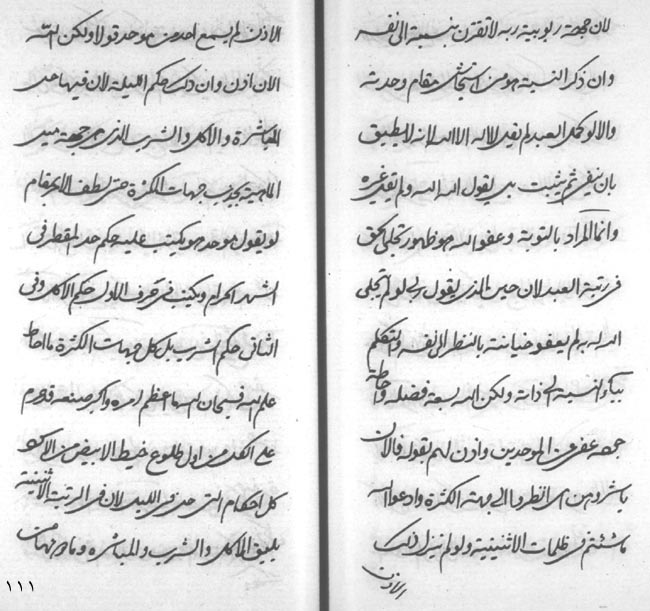 لان جهة ربوبية ربه لا تقترن بنسبة الى نفسه
وان ذكر النسبة هو من مقام وحدته
والا لو كمل العبد لم يقل لا اله الا الله لانه لا يطيق
بان ينفى ثم يثبت بل يقول الله الله ولم يقل غيره
وانما المراد بالتوبة وعفو الله هو ظهور تجلى الحق
فى رتبة العبد لان حين الذى يقول ربى لو لم تجلى
الله له لم يعفو خيانته بالنظر الى نفسه والتكلم
النسبة الى ذاته ولكن الله بسعة فضله واحاطة
عفى عن الموحدين واذن لهم بقوله فالان
باشروهن اى انظروا الى جهة الكثرة وادعوا الله
ما شئتم فى ظلمات الاثنينية ولو لم ينزل ذلك
الاذن
الاذن لم يسمع احد من موحد قولا ولكن الله
الان اذن وان ذلك حكم الليلة لان فيها حل
المباشرة والاكل والشرب الذى هى جهة ميل
الماهية جهات الكثرة حتى لطف الامر بمقام
لو يقول موحد هو يكتب عليه حكم حد المفطر فى
الشهر الحرام ويكتب فى حرف الاول حكم الاكل وفى
الثانى حكم الشرب بل كل جهات الكثرة ما احاط
علم الله فسبحان الله ما اعظم امره واكبر صنعه قد حرم
على الكل من اول طلوع خيط الابيض من الاسود
كل احكام التى حل فى الليل لان فى الرتبة الاثنينية
يليق الاكل والشرب والمباشرة وما هو جهات
١١١